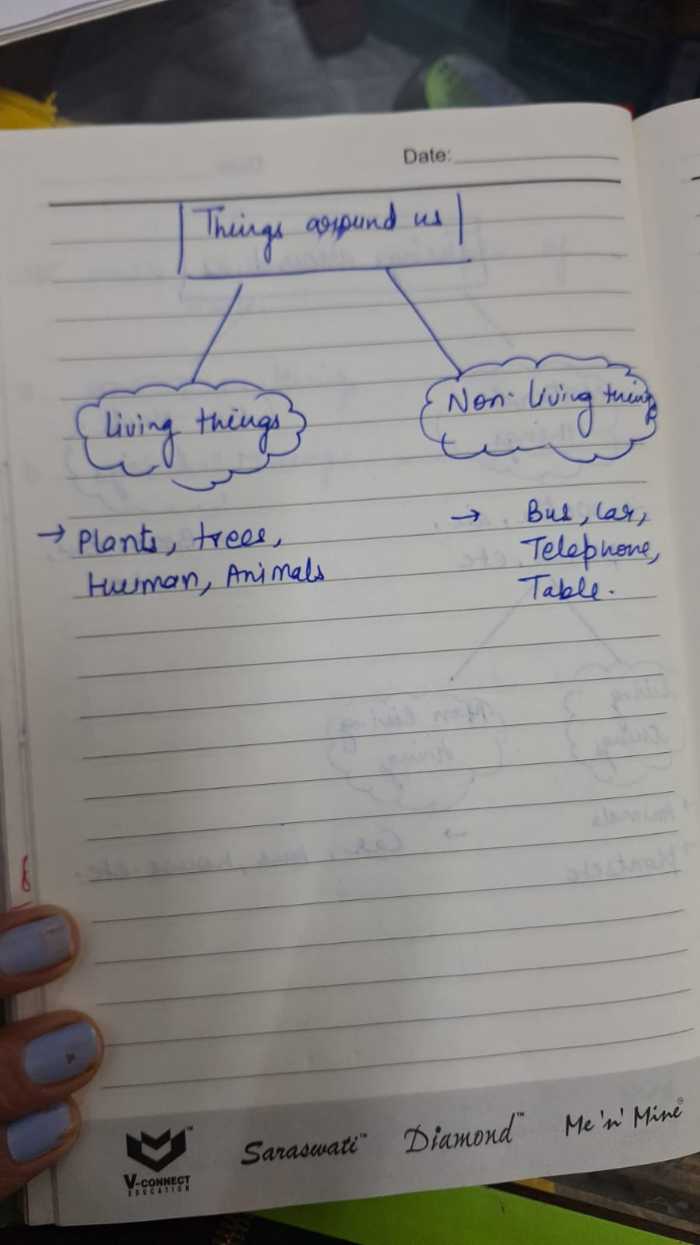 Date:
Things around us
Living things
Non-living thing
→ Plants, trees,
Human, Animals
→ Bus, Car,
Telephone,
Table.
V-CONNECT
EDUCATION
Saraswati™
Diamond™
Me 'n' Mine®